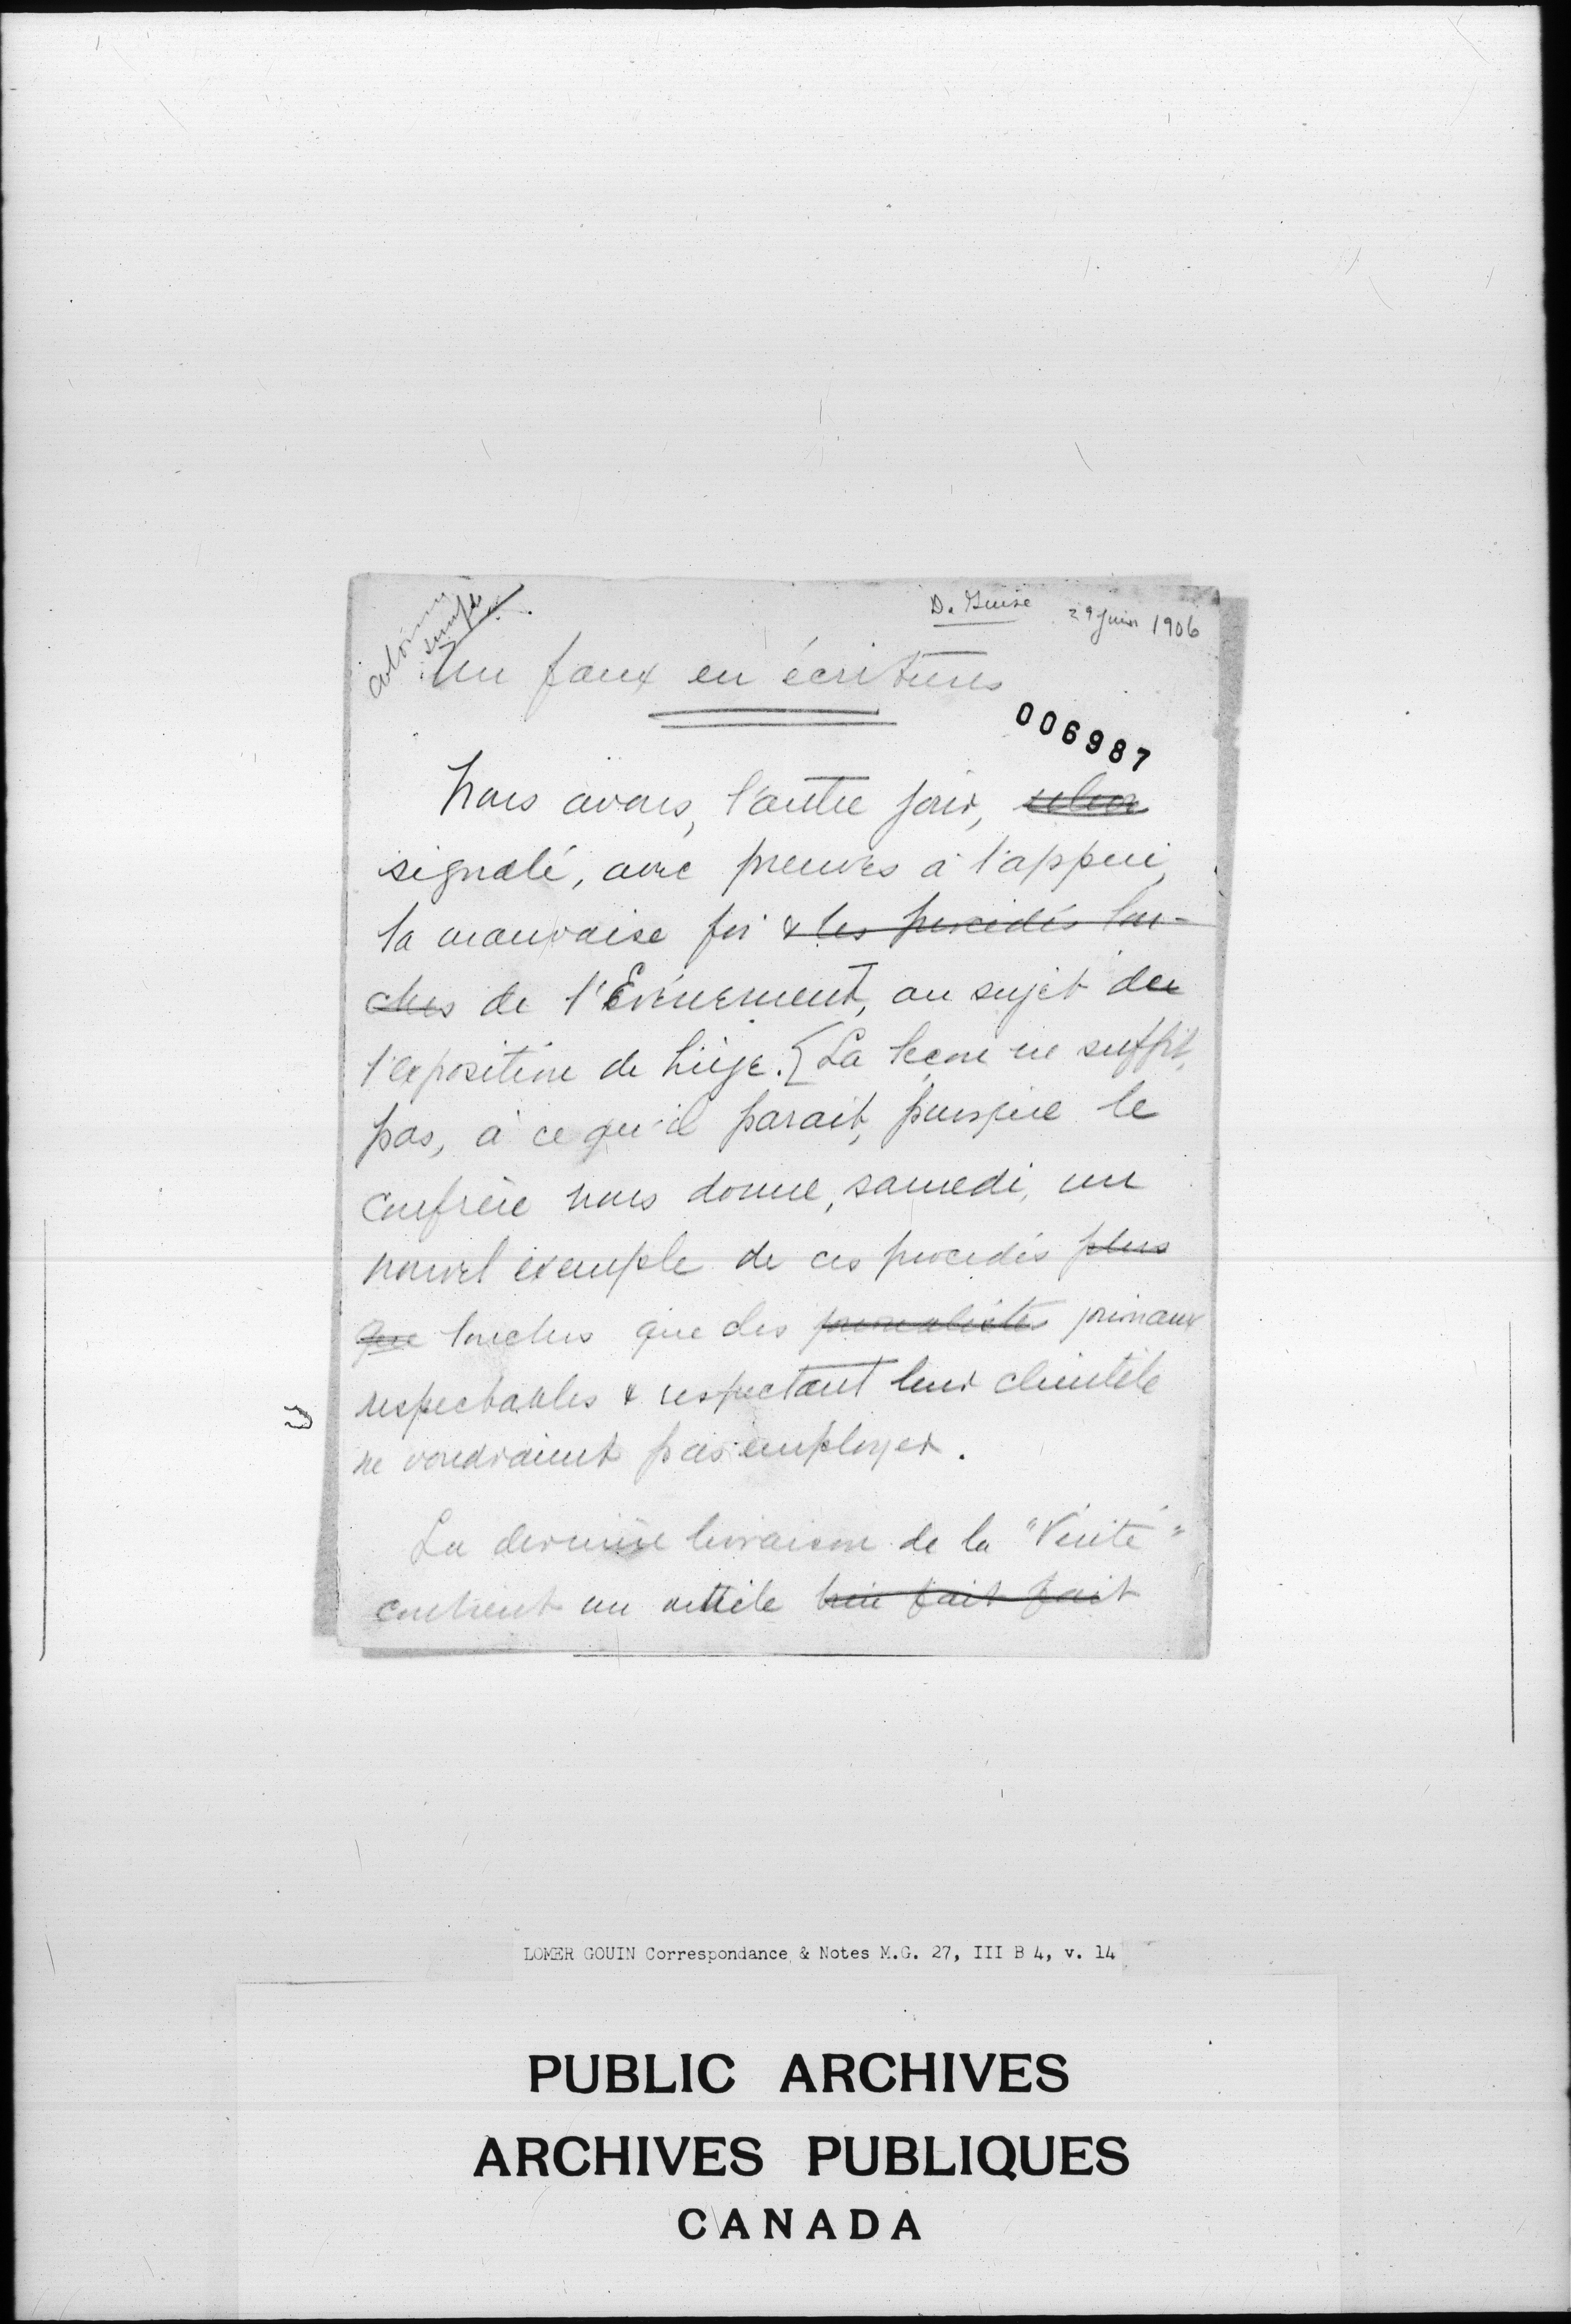 D. Guise 29 juin 1906
Un faux en écritures
006987
Nous avons, l'autre jour,
signalé, avec preuves à l'appui,
la mauvaise foi & les procédés lou-
ches de l'Evénement, au sujet de
l'exposition de Liège. [La leçon ne suffit
pas, à ce qu'il parait, puisque le
confrère nous donne, samedi, un
nouvel exemple de ces procédés plus
que louches que des journalistes journaux
respectables & respectant leur clientèle
ne voudraient pas employer.
La dernière livraison de la "Vérité"
contient un article bien fait fait
LOMER GOUIN Correspondance & Notes M.G. 27, III B 4, v. 14
PUBLIC ARCHIVES
ARCHIVES PUBLIQUES
CANADA